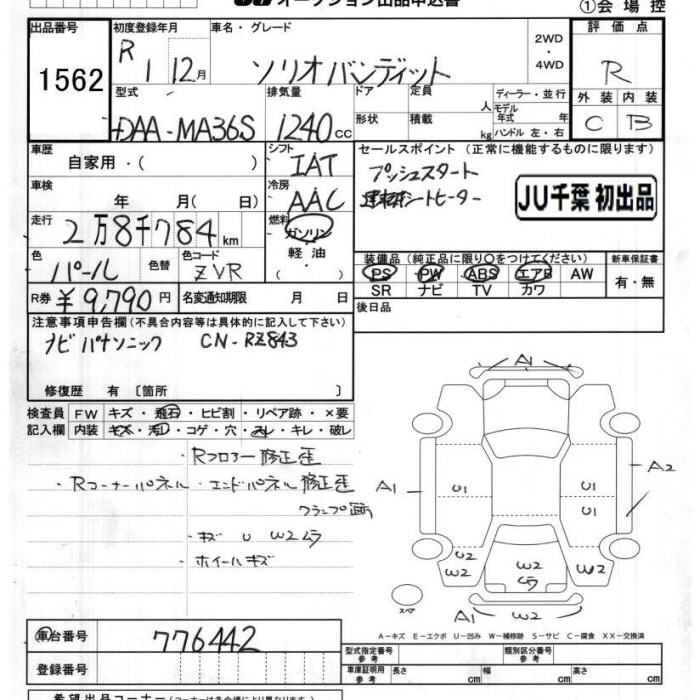 オークション出品申込書
①会場控
出品番号
1562
初度登録年月
R 1 12月
車名・グレード
ソリオバンディット
2WD
・
4WD
評価点
R
型式
DAA-MA36S
排気量
1240cc
ドア
形状
定員 人
積載 kg
ディーラー・並行
モデル
年式 年
ハンドル 左・右
外装 内装
C B
車歴
自家用・( )
シフト
IAT
セールスポイント (正常に機能するものに限ります)
プッシュスタート
シートヒーター
JU千葉 初出品
車検
年 月( 日)
冷房
AAC
走行
2万8千784km
燃料
ガソリン
・
軽油
・
( )
装備品 (純正品に限り○をつけてください)
新車保証書
PS PW ABS エアB AW
SR ナビ TV カワ
有・無
色
パール
色替
色コード
ZVR
R券 ¥9,790円
名変通知期限 月 日
後日品
注意事項申告欄 (不具合内容等は具体的に記入して下さい)
ナビ パナソニック CN-RZ843
修復歴 有 [箇所 ]
検査員 FW キズ・飛石・ヒビ割・リペア跡・×要
記入欄 内装 キズ・汚レ・コゲ・穴・スレ・キレ・破レ
・Rフロアー修正歪
・Rコーナーパネル・エンドパネル修正歪
クランプ跡
・キズ U W2ムラ
・ホイールキズ
A1
A1 U1 U1 A2
U1
U2 W2 U2
W2 ムラ W2
スペア
A1 W2
A-キズ E-エクボ U-凹み W-補修跡 S-サビ C-腐食 XX-交換済
車台番号 776442
登録番号
型式指定番号
参考
類別区分番号
参考
車庫証明用
参考
長さ cm 幅 cm 高さ cm
希望出品コーナー